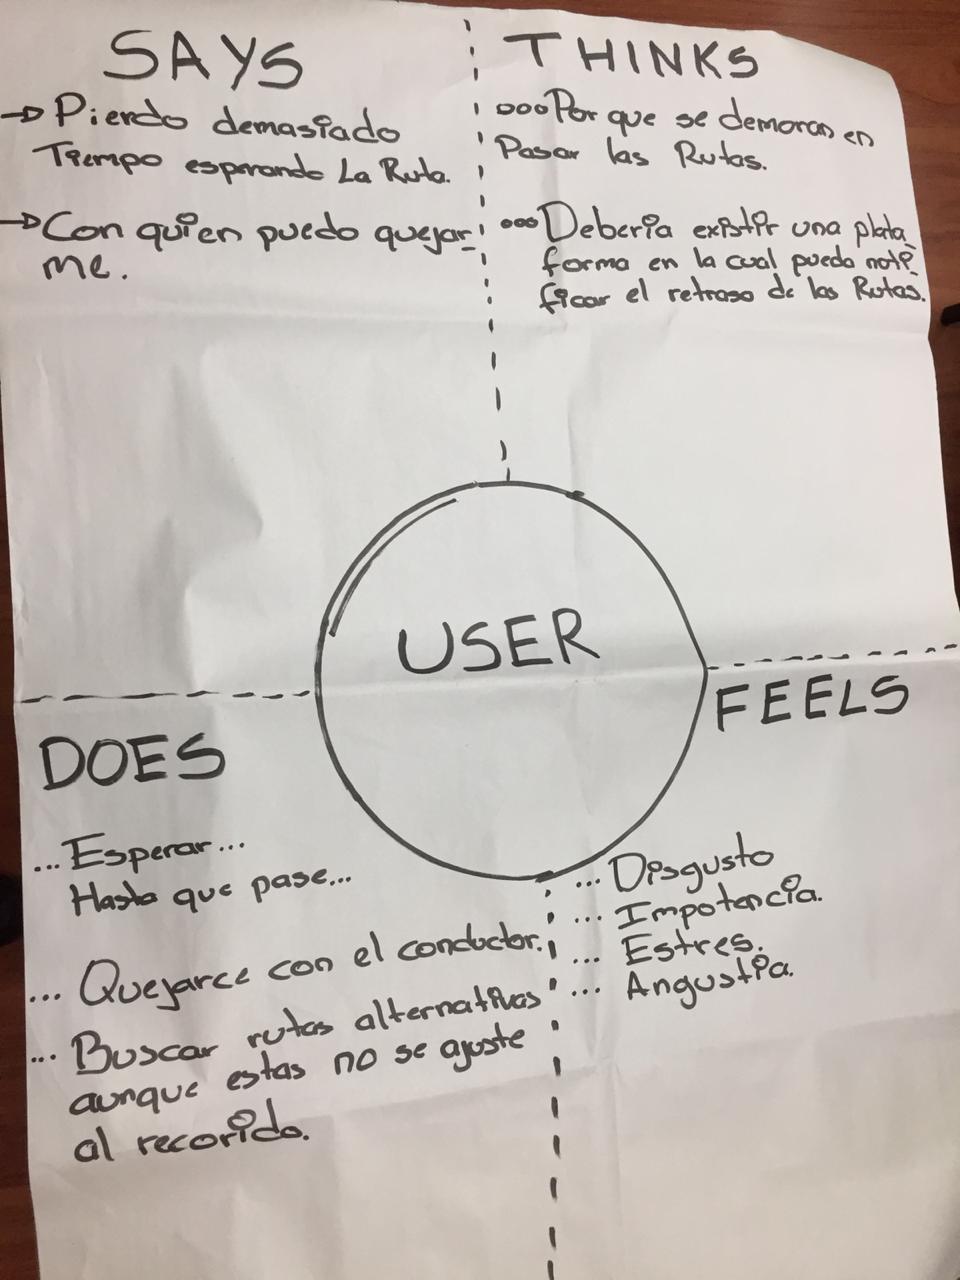 SAYS
→ Pierdo demasiado
Tiempo esperando La Ruta.
→ Con quien puedo quejar-
me.
THINKS
ooo Por que se demoran en
Pasar las Rutas.
ooo Deberia existir una plata-
forma en la cual pueda noti-
ficar el retraso de las Rutas.
USER
DOES
... Esperar...
Hasta que pase...
... Quejarce con el conductor.
... Buscar rutas alternativas
aunque estas no se ajuste
al recorido.
FEELS
... Disgusto
... Impotencia.
... Estres.
... Angustia.